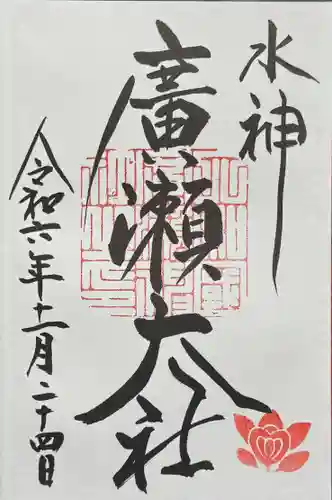 水神
廣瀬大社
令和六年十一月二十四日